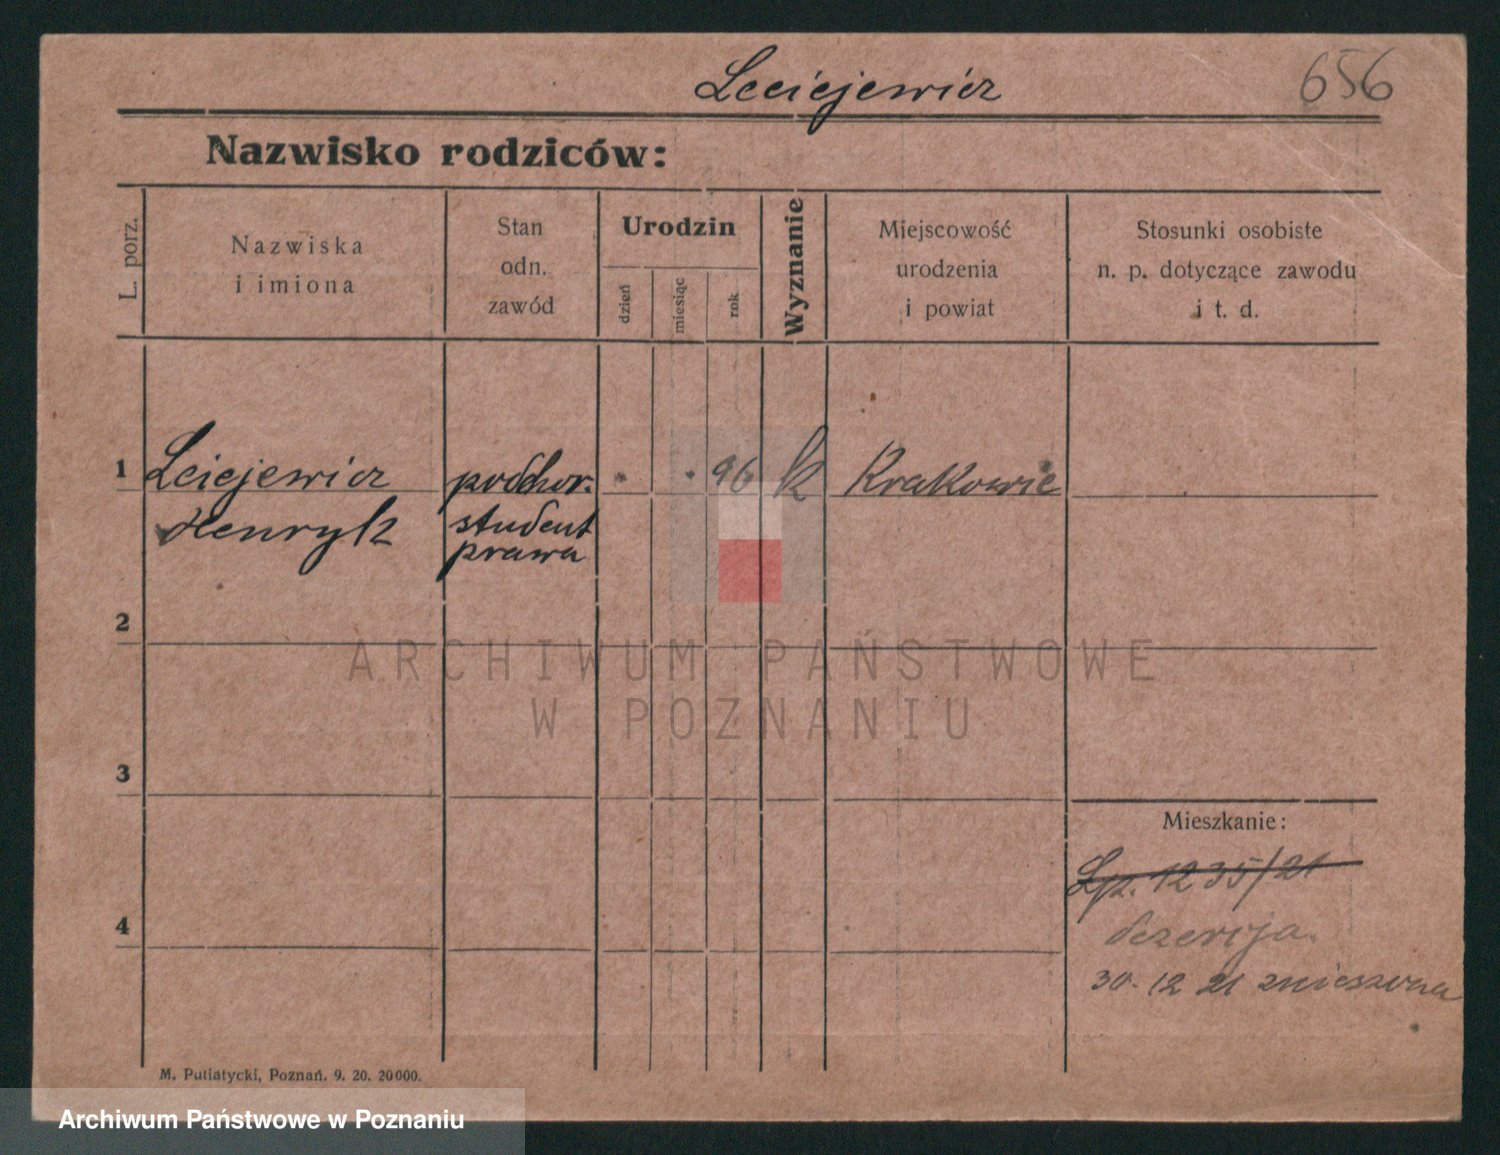 Leciejewicz
656
Nazwisko rodziców:
L. porz.
Nazwiska
i imiona
Stan
odn.
zawód
Urodzin
dzień
miesiąc
rok
Wyznanie
Miejscowość
urodzenia
i powiat
Stosunki osobiste
n. p. dotyczące zawodu
i t. d.
1
Lciejewicz
Henryk
podchor.
student
prawa
96
k
Krakowie
2
3
4
ARCHIWUM PAŃSTWOWE
W POZNANIU
Mieszkanie:
Lp. 1235/21
dezercja.
30-12 21 zniesiona
M. Putiatycki, Poznań. 9. 20. 20000.
Archiwum Państwowe w Poznaniu